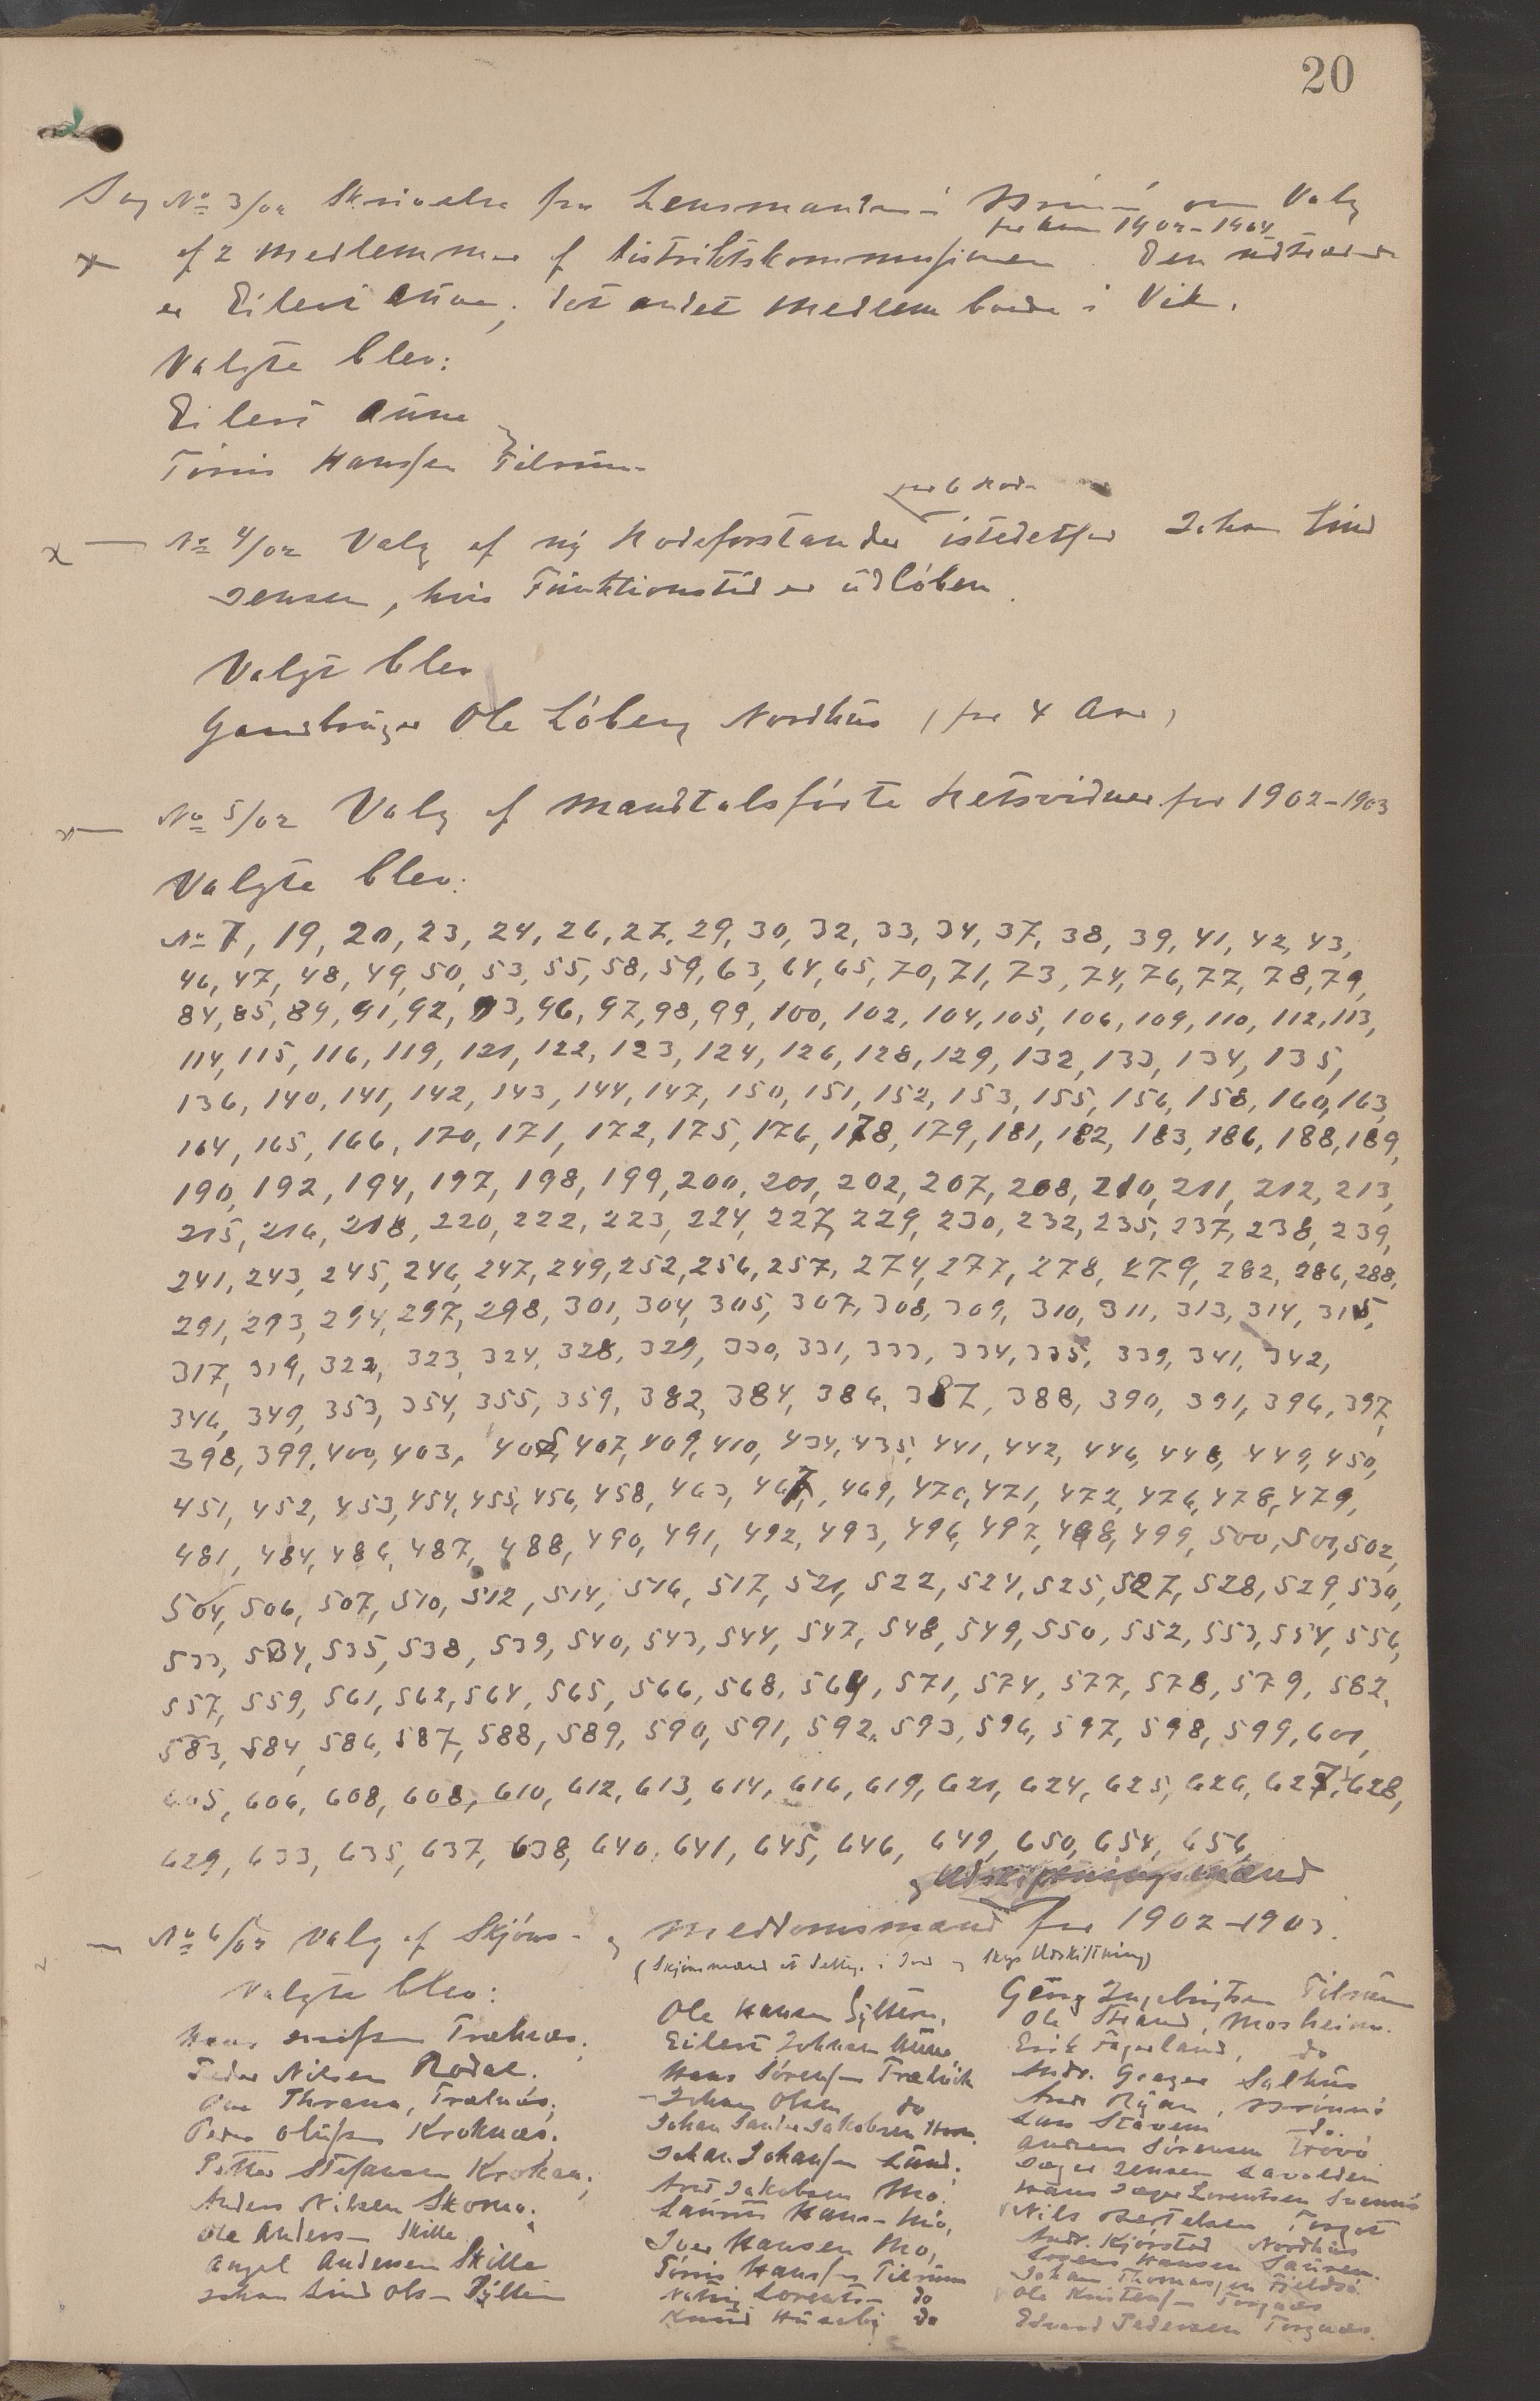 20
Sag No 3/02 Skrivelse fra Lensmanden i Brønnø om Valg
for Aarene 1902-1904
af 2 Medlemmer af Distriktskommissionen. Den udtrædende
er Eilert Aune, det andet Medlem boede i Vik.
Valgte blev:
Eilert Aune
og
Tønis Hanssen Tilrum.
for 6 Rode
No 4/02 Valg af ny Rodeforstander istedetfor Johan Lind
Jensen, hvis Funktionstid er udløben.
Valgt blev
Gaardbruger Ole Løberg Nordhus (for 4 Aar)
No 5/02 Valg af mandtalsførte Retsvidner for 1902-1903
Valgte blev:
No 7, 19, 20, 23, 24, 26, 27, 29, 30, 32, 33, 34, 37, 38, 39, 41, 42, 43,
46, 47, 48, 49, 50, 53, 55, 58, 59, 63, 64, 65, 70, 71, 73, 74, 76, 77, 78, 79,
84, 85, 89, 91, 92, 93, 96, 97, 98, 99, 100, 102, 104, 105, 106, 109, 110, 112, 113,
114, 115, 116, 119, 121, 122, 123, 124, 126, 128, 129, 132, 133, 134, 135,
136, 140, 141, 142, 143, 144, 147, 150, 151, 152, 153, 155, 156, 158, 160, 163,
164, 165, 166, 170, 171, 172, 175, 176, 178, 179, 181, 182, 183, 186, 188, 189,
190, 192, 194, 197, 198, 199, 200, 201, 202, 207, 208, 210, 211, 212, 213,
215, 216, 218, 220, 222, 223, 224, 227, 229, 230, 232, 235, 237, 238, 239,
241, 243, 245, 246, 247, 249, 252, 256, 257, 274, 277, 278, 279, 282, 286, 288,
291, 293, 294, 297, 298, 301, 304, 305, 307, 308, 309, 310, 311, 313, 314, 315,
317, 319, 322, 323, 324, 328, 329, 330, 331, 333, 334, 335, 339, 341, 342,
346, 349, 353, 354, 355, 359, 382, 384, 386, 387, 388, 390, 391, 396, 397,
398, 399, 400, 403, 405, 407, 409, 410, 434, 435, 441, 442, 446, 448, 449, 450,
451, 452, 453, 454, 455, 456, 458, 463, 467, 469, 470, 471, 472, 476, 478, 479,
481, 484, 486, 487, 488, 490, 491, 492, 493, 496, 497, 498, 499, 500, 501, 502,
504, 506, 507, 510, 512, 514, 516, 517, 521, 522, 524, 525, 527, 528, 529, 530,
533, 534, 535, 538, 539, 540, 543, 544, 547, 548, 549, 550, 552, 553, 554, 556,
557, 559, 561, 562, 564, 565, 566, 568, 569, 571, 574, 577, 578, 579, 582,
583, 584, 586, 587, 588, 589, 590, 591, 592, 593, 596, 597, 598, 599, 601,
605, 606, 608, 608, 610, 612, 613, 614, 616, 619, 621, 624, 625, 626, 627, 628,
629, 633, 635, 637, 638, 640, 641, 645, 646, 649, 650, 654, 656,
og Udskiftningsmænd
No 6/02 Valg af Skjøns- og Meddomsmænd for 1902-1903.
(Skjønsmænd at deltage i Jord og Skogs Udskiftning)
Valgte blev:
Hans Trælnæs.
Peder Nilsen Rodal.
Ole Thrana, Trælnæs,
Peder Olufsen Kroknæs.
Petter Stefansen Kroken,
Anders Nilsen Skomo.
Ole Anders- Skille
Angel Andersen Skille
Johan Lind Ols- Sylten
Ole Hansen Sylten,
Eilert Johnsen Aune
Hans Sørensen Trælvik
Johan Olsen do
Johan Jakobsen Horn.
Johan Johansen Lund,
Arnt Jakobsen Mo.
Laurits Hans- Mo,
Iver Hansen Mo,
Tønis Hanssen Tilrum
Lorents- do
Knud Huseby do
Georg Ingebrigtsen Tilrum
Ole Strand, Mosheim.
Erik Fagerland, do
Andr. Graeger Salhus
Arnt Rÿan, Brønnø
Lars Stavem do.
Andreas Sørensen Trovø
Jæger Jensen
Hans Jæger Lorentsen
Nils Bertelsen Torget
Andr. Kjørstad Nordhus
Hansen Sausen.
Johan Thomassen Fjeldsø
Ole Knutsen Torgnæs
Edvard Pedersen Torgnæs.